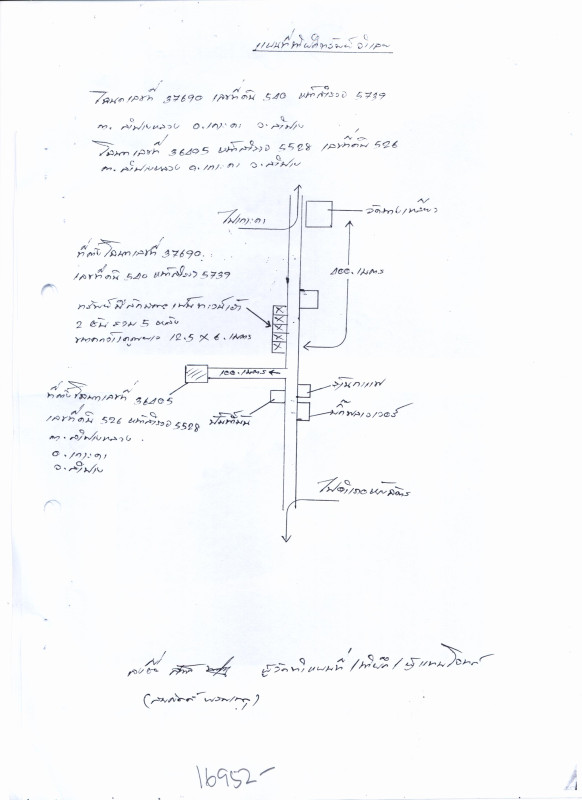 แผนที่ที่ตั้งทรัพย์ จำเลย
โฉนดเลขที่ 37690 เลขที่ดิน 540 หน้าสำรวจ 5739
ต. ลำปางหลวง อ.เกาะคา จ.ลำปาง
โฉนดเลขที่ 36405 หน้าสำรวจ 5528 เลขที่ดิน 526
ต.ลำปางหลวง อ.เกาะคา จ.ลำปาง
ไปเกาะคา
ที่ตั้งโฉนดเลขที่ 37690
400.เมตร
เลขที่ดิน 540 หน้าสำรวจ 5739
2 ชั้น รวม 5 หลัง
12.5 X 6.เมตร
100.เมตร
ที่ตั้งโฉนดเลขที่ 36405
ร้านกาแฟ
เลขที่ดิน 526 หน้าสำรวจ 5528
ปั๊มน้ำมัน
ต.ลำปางหลวง
อ.เกาะคา
จ.ลำปาง
ไปอำเภอห้างฉัตร
ลงชื่อ ผู้จัดทำแผนที่ / / ผู้แทนโจทก์
16952-